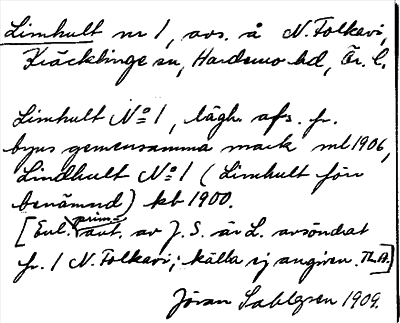 Limhult nr 1, avs. å N. Folkavi,
Kräcklinge sn, Hardemo hd, Ör. l.
Limhult No 1, lägh. afs. fr.
byns gemensamma mark ml 1906,
Lindhult No 1 (Limhult förr
benämnd) kb 1900.
[Enl. prim- ant. av J. S. är L. avsöndrat
fr. 1 N. Folkavi; källa ej angiven. Th. A.]
Jöran Sahlgren 1909.